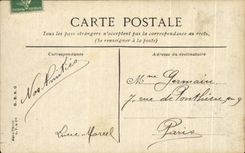 CARTE POSTALE
Tous les pays étrangers n'acceptent pas la correspondance au recto,
(Se renseigner à la poste)
Correspondance
Adresse du destinataire
Nos Amitiés
Mme Germain
7 rue de Ponthieu
Paris